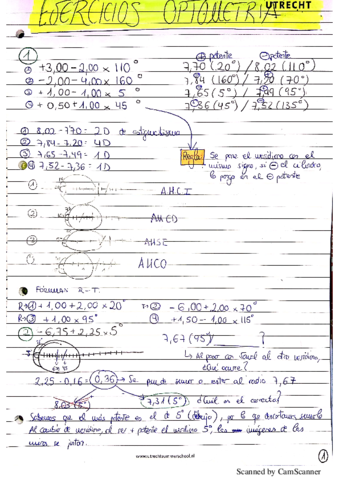 EJERCICIOS OPTOMETRIA UTRECHT
① ⊕ potente ⊖ potente
① +3,00 -2,00 x 110° 7,70 (20°) / 8,02 (110°)
② -2,00 -4,00 x 160° 7,84 (160°) / 7,20 (70°)
③ +1,00 -1,00 x 5° 7,65 (5°) / 7,49 (95°)
④ +0,50 +1,00 x 45° 7,36 (45°) / 7,52 (135°)
① 8,02 - 7,70 = 2D de astigmatismo
② 7,84 - 7,20 = 4D
③ 7,65 - 7,49 = 1D
④ 7,52 - 7,36 = 1D
Regla: Se pone el meridiano con el
mismo signo, si ⊖ el cilindro
lo pongo en el ⊖ potente
1) AHCI
2)
3) AHSE
AHCO
FORMULA R-T.
R→① +1,00 +2,00 x 20° T→② -6,00 +2,00 x 70°
R→③ +1,00 x 95° ④ +1,50 -1,00 x 115°
② -6,75 +2,25 x 5°
7,67 (95°) ?
Al pasar al otro meridiano,
¿qué ocurre?
2,25 · 0,16 = 0,36 → Se puede sumar o restar al radio 7,67
8,03 (5°) 7,31 (5°) ¿Cuál es el correcto?
Sabemos que el más potente es el de 5° (dibujo), por lo que descartamos
Al cambio de meridiano, el + potente el meridiano 5°, las imágenes de las
miras se
www.utrechtsummerschool.nl
①
Scanned by CamScanner